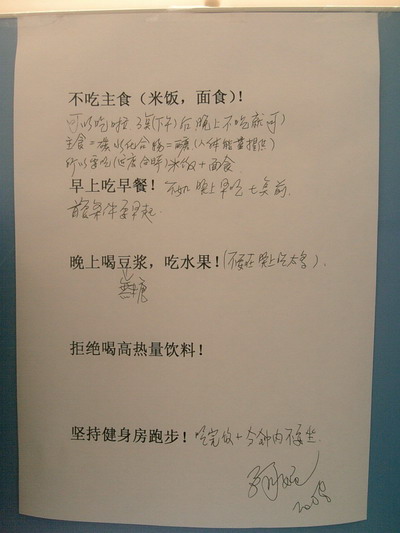 不吃主食（米饭，面食）！
可以吃啦 3点(下午)后晚上不吃就可)
主食=碳水化合物=糖(人体能量提供)
所以要吃(适度合时)米饭+面食.
早上吃早餐！ 不如晚上早吃七点前.
前提条件要早起.
晚上喝豆浆，吃水果！(不要在晚上吃太多).
无糖
拒绝喝高热量饮料！
坚持健身房跑步！ 吃完饭十分钟内不要坐.